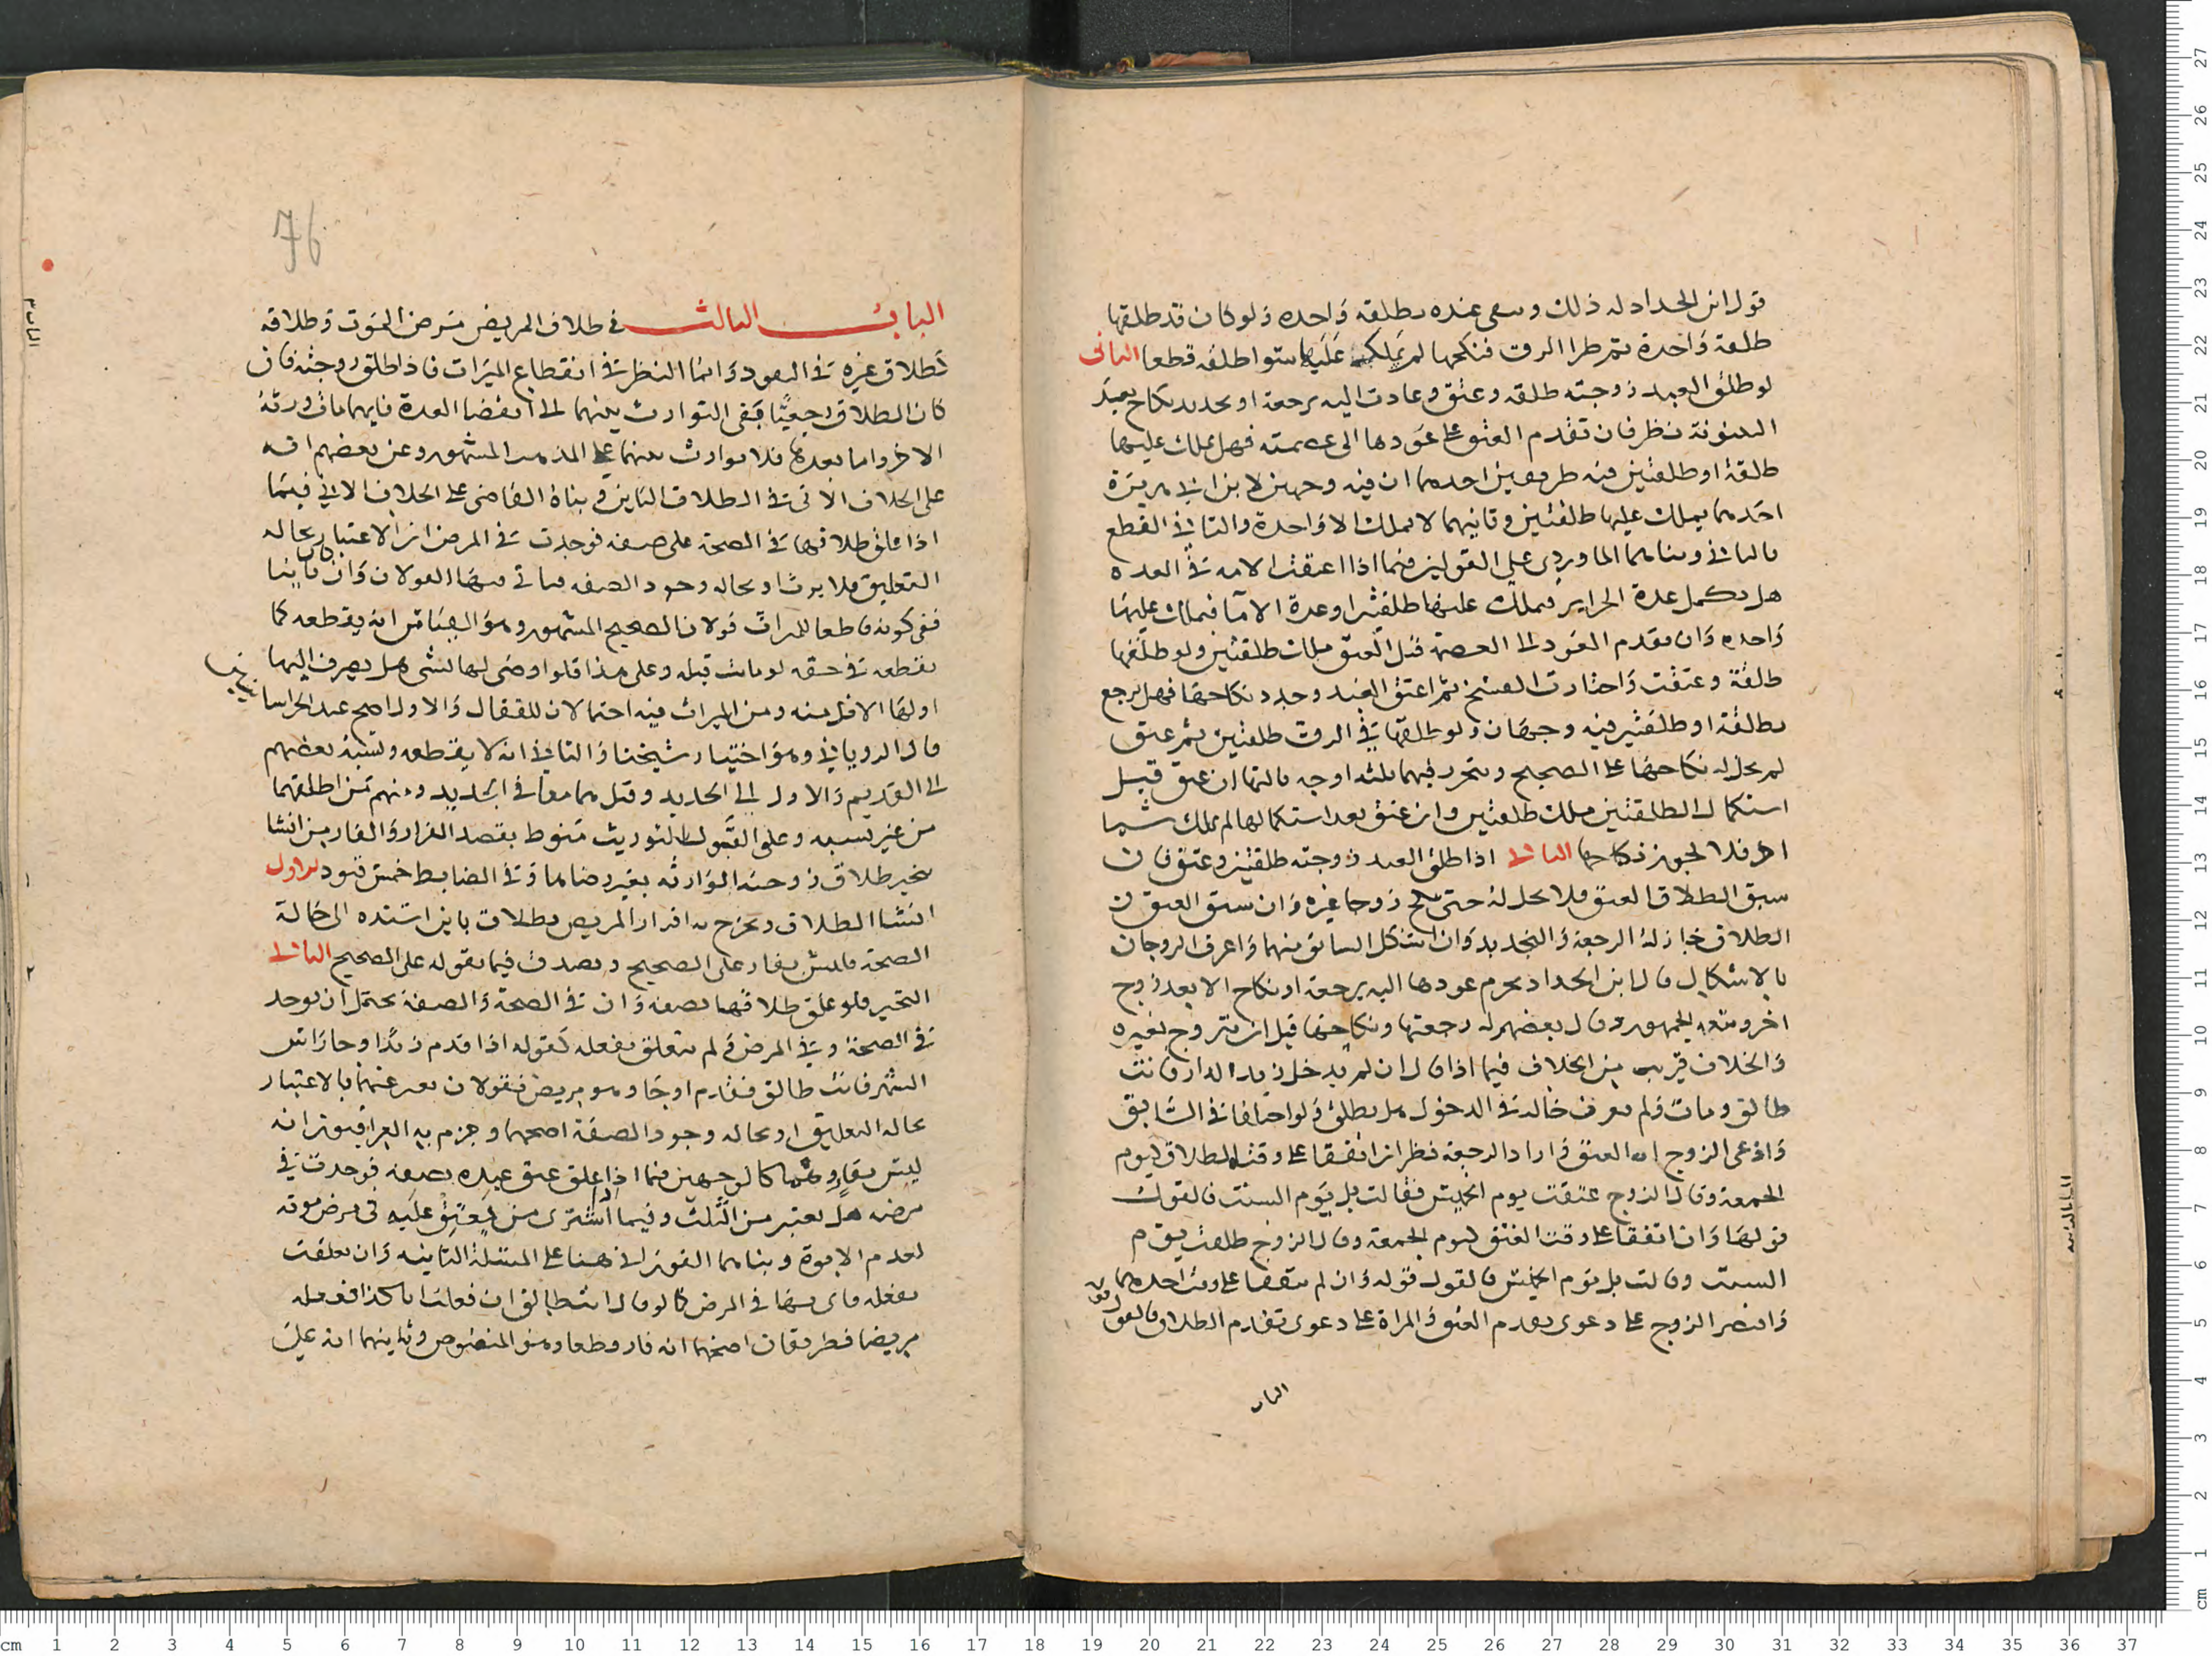 قول ابن الحداد له ذلك وسقى عنده بطلقه واحده ولو كان قد طلقها
طلقة واحدة ثم طرا الرق فنكحها لم يملك عليها سوا طلقه قطعا الثانى
لو طلق العبد زوجته طلقه وعتق وعادت اليه برجعة او بحديد نكاح بعد
البينونة نظر فان تقدم العتق على عودها الى عصمته فهل يملك عليها
طلقة او طلقتين فيه طريقين احدهما ان فيه وجهين لابن ابي هريرة
احدهما يملك عليها طلقتين وثانيهما لا يملك الا واحدة والثاني القطع
بالثاني وبناهما الماوردى على القولين فيما اذا اعتقت الامه في العده
هل تكمل عدة الحراير فيملك عليها طلقتين او عدة الاما فيملك عليها
واحده وان تقدم العود الى العصمة قبل العتق ملك طلقتين ولو طلقها
طلقة وعتقت واختارت الفسخ ثم اعتق العبد وجدد نكاحها فهل يرجع
بطلقة او طلقتين فيه وجهان ولو طلقها في الرق طلقتين ثم عتق
لم يحل له نكاحها على الصحيح ويتحرر فيهما ثلثه اوجه ثالثها ان عتق قبل
استكمال الطلقتين ملك طلقتين وان عتق بعد استكمالها لم يملك شيا
اخر فلا يجوز نكاحها الثالث اذا طلق العبد زوجته طلقتين وعتق فان
سبق الطلاق العتق فلا تحل له حتى تنكح زوجا غيره وان سبق العتق
الطلاق جاز له الرجعة والتجديد وان اشكل السابق منهما واعرف الزوجان
بالاشكال قال ابن الحداد يحرم عودها اليه برجعة او نكاح الا بعد زوج
اخر وتبعه الجمهور وقال بعضهم له رجعتها ونكاحها قبل ان تتزوج بغيره
والخلاف قريب من الخلاف فيما اذا قال ان لم يدخل زيد الدار فانت
طالق ومات ولم يعرف حاله في الدخول هل يطلق ولو اختلفا في السابق
وادعى الزوج انه العتق واراد الرجعة نظر ان اتفقا على وقت الطلاق ليوم
الجمعة وقال الزوج عتقت يوم الخميس فقالت بل يوم السبت فالقول
قولها وان اتفقا على وقت العتق ليوم الجمعة وقال الزوج طلقت يوم
السبت وقالت بل يوم الخميس فالقول قوله وان لم يتفقا على وقت احدهما
واقتصر الزوج على دعوى تقدم العتق والمراة على دعوى تقدم الطلاق فالقول قوله
الباب
76
البـاب الثالث في طلاق المريض مرض الموت وطلاقه
كطلاق غيره في النفوذ وانما النظر في انقطاع الميراث فاذا طلق زوجته فان
كان الطلاق رجعيا بقى التوارث بينهما الى انقضا العدة فايهما مات ورثه
الاخر واما بعدها فلا توارث بينهما على المذهب المشهور وعن بعضهم انه
على الخلاف الاتى في الطلاق الباين وبناه القاضى على الخلاف الاتي فيما
اذا علق طلاقها في الصحة على صفه فوجدت في المرض ان الاعتبار بحاله
التعليق فلا يرث او بحاله وجود الصفه فياتى فيها القولان وان كان باينا
ففى كونه قاطعا للميراث قولان الصحيح المشهور وهو القياس انه يقطعه كما
يقطعه في حقه لو مات قبله وعلى هذا قلوا اوصى لها بشى هل يصرف اليها
اولها الاقل منه ومن الميراث فيه احتمالان للقفال والاول اصح عند الخراسانيين
قال الروياني وهو اختيار شيخنا والثاني انه لا يقطعه ونسبه بعضهم
الى القديم والاول الى الجديد وقيل هما معا في الجديد ومنهم من اطلقهما
من غير نسبه وعلى القول التوريث منوط بقصد الفرار والفار من انشا
تنجيز طلاق زوجته الوارثه بغير رضاها وفي الضابط خمس قيود الاول
انشا الطلاق ويخرج به اقرار المريض بطلاق باين اسنده الى حالة
الصحة فليس بفار على الصحيح ويصدق فيما يقوله على الصحيح الثاني
التنجيز فلو علق طلاقها بصفه وان في الصحة والصفة يحتمل ان توجد
في الصحة وفي المرض ولم تتعلق بفعله كقوله اذا قدم زيد او جا راس
الشهر فانت طالق فقدم او جا وهو مريض فقولان يعبر عنهما بالاعتبار
بحاله التعليق او بحاله وجود الصفة اصحهما وجزم به العراقيون انه
ليس بفار وهما كالوجهين فيما اذا علق عتق عبده بصفه فوجدت في
مرضه هل يعتبر من الثلث وفيما اشترى من يعتق عليه فى مرض موته
لعدم الابوة وبناهما الفوراني هنا على المسئلة الثانيه وان تعلقت
بفعله واتى بها في المرض كما لو قال انت طالق ان فعلت انا كذا ففعله
مريضا فطريقان اصحهما انه فار قطعا وهو المنصوص وثانيهما انه على